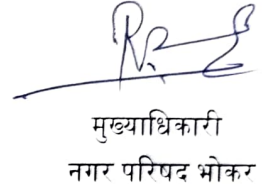 मुख्याधिकारी
नगर परिषद भोकर